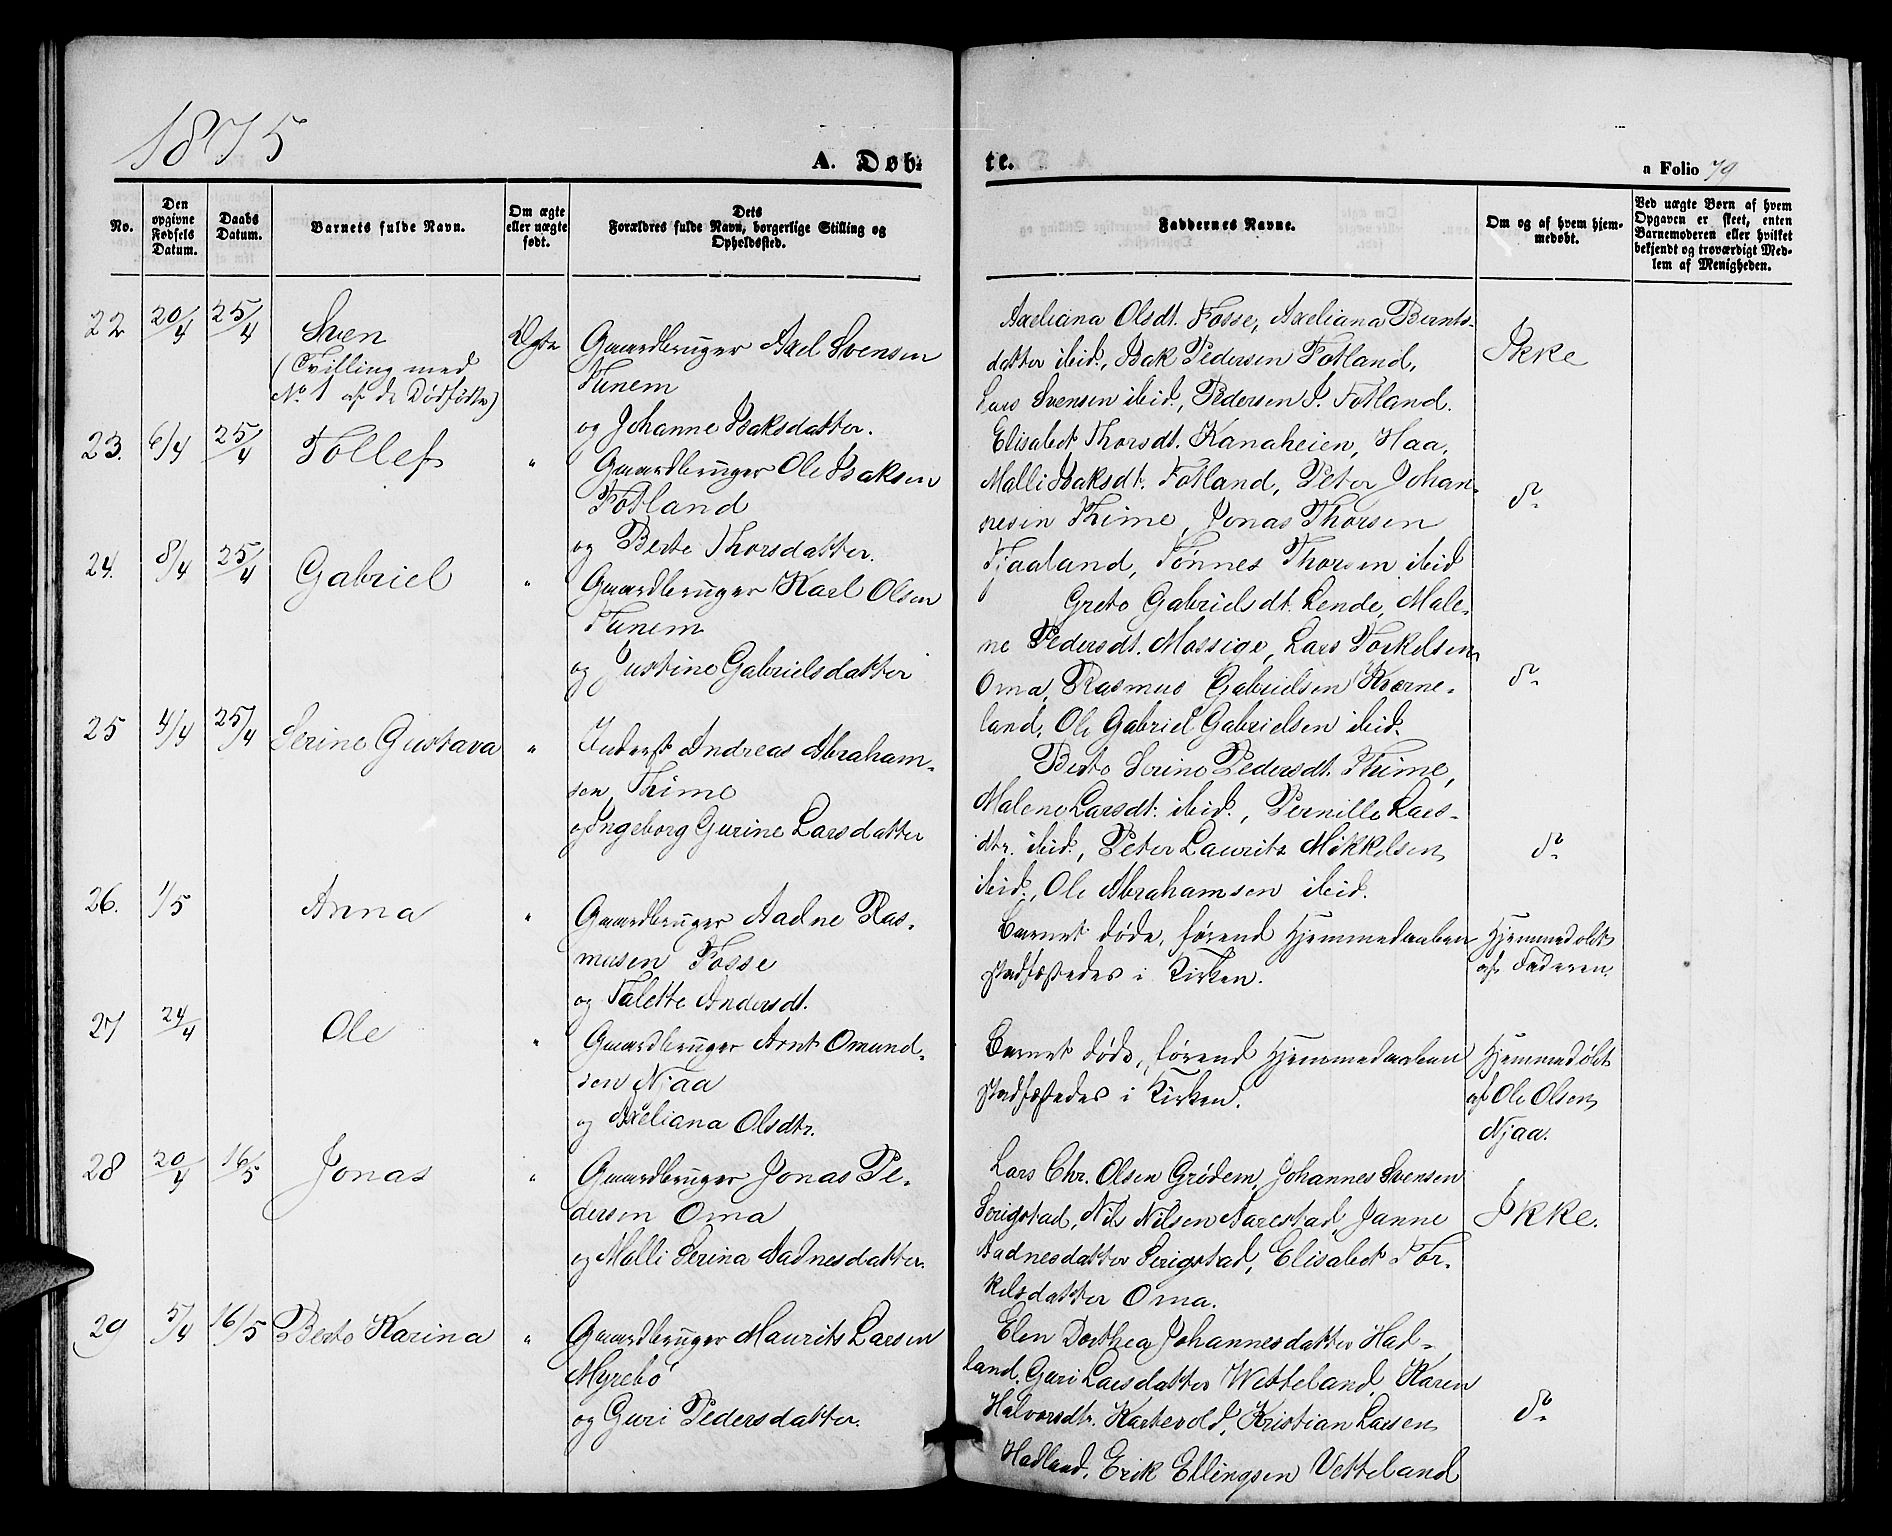 1875
A. Døb-
te.
a Folio 79
No.
Den opgivne Fødsels Datum.
Daabs Datum.
Barnets fulde Navn.
Om ægte eller uægte født.
Dets Forældres fulde Navn, borgerlige Stilling og Opholdssted.
Faddernes Navne.
Om og af hvem hjemmedøbt.
Ved uægte Børn af hvem Opgaven er skeet, enten Barnemoderen eller hvilket bekjendt og troværdigt Medlem af Menigheden.
22 20/4 25/4 Sven Ægte
(Tvilling med
No 1 af de Dødfødte)
Gaardbruger Axel Svensen
Tunem
og Johanne Isaksdatter.
Axeliana Olsdt. Fosse, Axeliana Bernts-
datter ibid., Isak Pedersen Fotland,
Lars Svensen ibid., Pedersen I. Fotland.
Ikke
23. 6/4 25/4 Tollef "
Gaardbruger Ole Isaksen
Fotland
og Berte Thorsdatter.
Elisabet Thorsdt. Kanaheien, Haa,
Malli Isaksdt. Fotland, Peter Johan-
nesen Thime, Jonas Thorsen
Fjaaland, Tønnes Thorsen ibid
do
24. 8/4 25/4 Gabriel "
Gaardbruger Karl Olsen
Tunem
og Justine Gabrielsdatter
Grete Gabrielsdt. Lende, Male-
ne Pedersdt. Mossige, Lars Torkelsen
Oma, Rasmus Gabrielsen Kverne-
land, Ole Gabriel Gabrielsen ibid.
do
25 4/4 25/4 Serine Gustava "
Inderst Andreas Abraham-
sen, Thime
og Ingeborg Gurine Larsdatter
Berte Serine Pedersdt. Thime,
Malene Larsdt. ibid., Pernille Lars-
dtr. ibid., Peter Laurits Mikkelsen
ibid., Ole Abrahamsen ibid.
do
26. 1/5 Anna "
Gaardbruger Aadne Ras-
musen Fosse
og Talette Andersdt.
Barnet døde, førend Hjemmedaaben
stadfæstedes i Kirken.
Hjemmedøbt
af Faderen.
27 24/4 Ole "
Gaardbruger Arnt Omund-
sen Njaa
og Axeliana Olsdtr.
Barnet døde, førend Hjemmedaaben
stadfæstedes i Kirken.
Hjemmedøbt
af Ole Olsen
Njaa.
28 20/4 16/5 Jonas "
Gaardbruger Jonas Pe-
dersen Oma
og Malli Serina Aadnesdatter.
Lars Chr. Olsen Grødem, Johannes Svensen
Serigstad, Nils Nilsen Aarestad, Janne
Aadnesdatter Serigstad, Elisabet Tor-
kelsdatter Oma.
Ikke.
29 5/4 16/5 Berto Karina "
Gaardbruger Maurits Larsen
Myrebø
og Guri Pedersdatter.
Elen Dorthea Johannesdatter Had-
land, Guri Larsdatter Wetteland, Karen
Halvorsdtr. Kartevold, Kristian Larsen
Hadland, Erik Ellingsen Vetteland
do